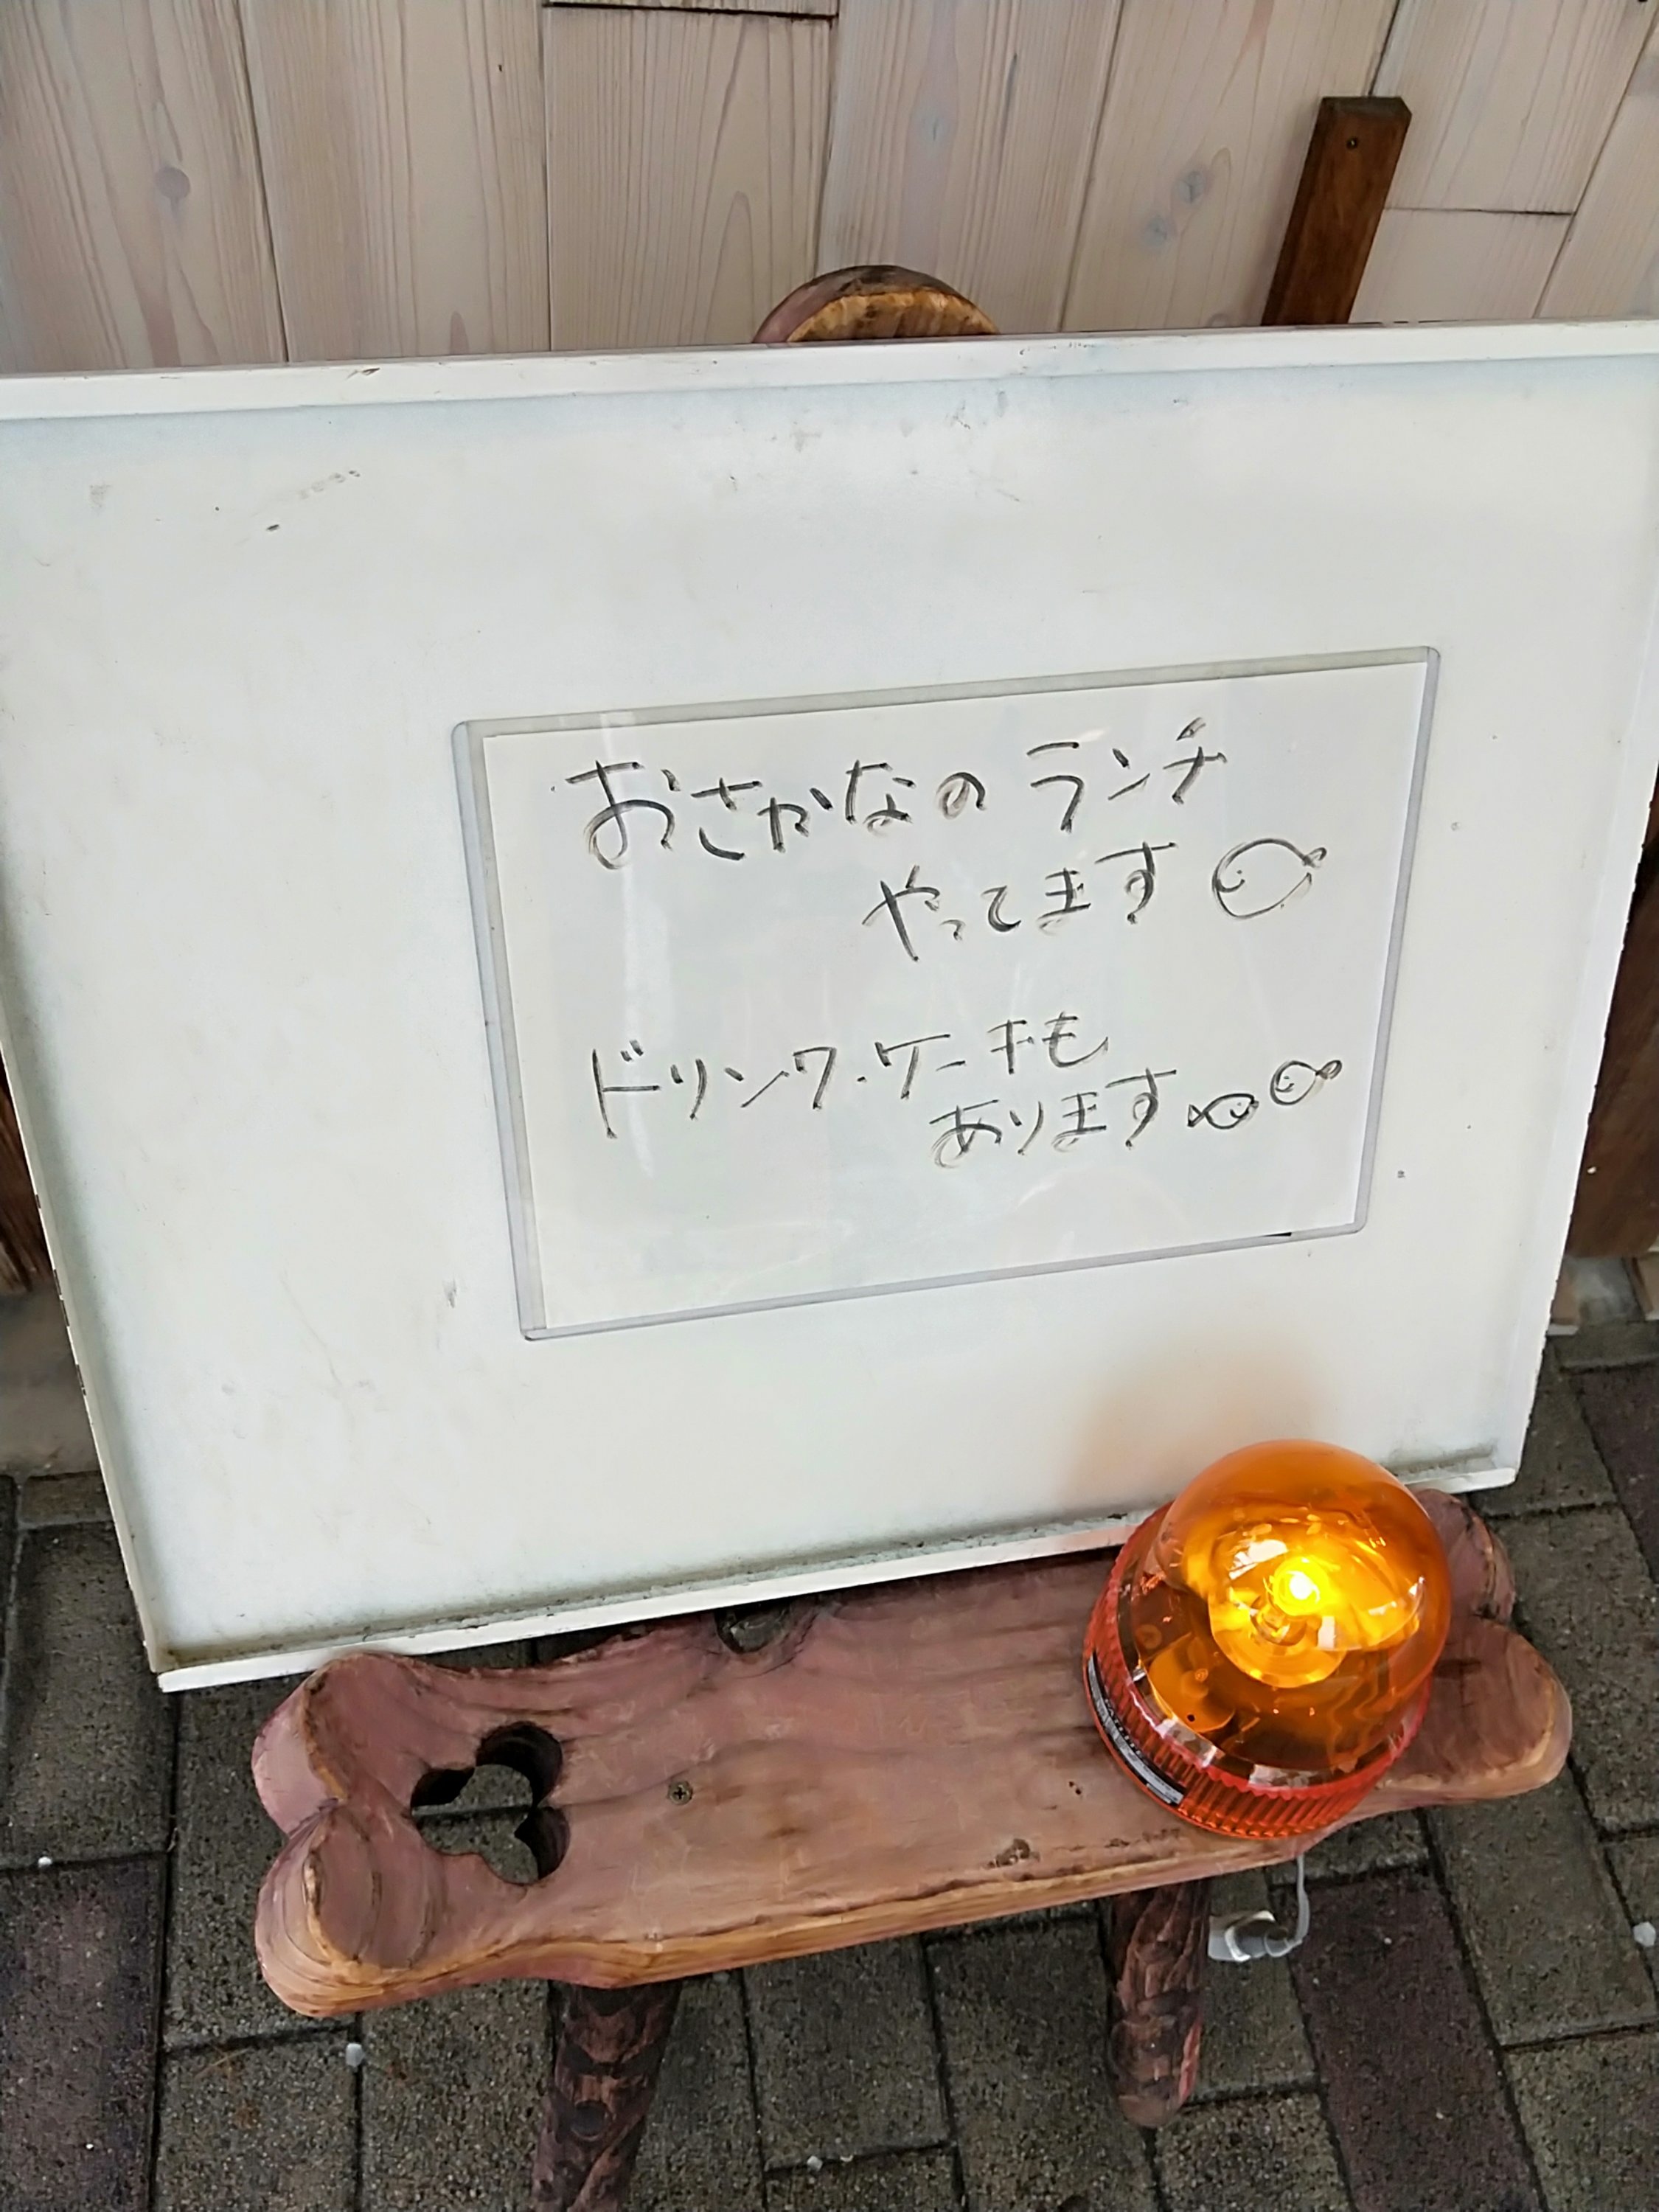 おさかなのランチ
やってます
ドリンク・ケーキも
あります